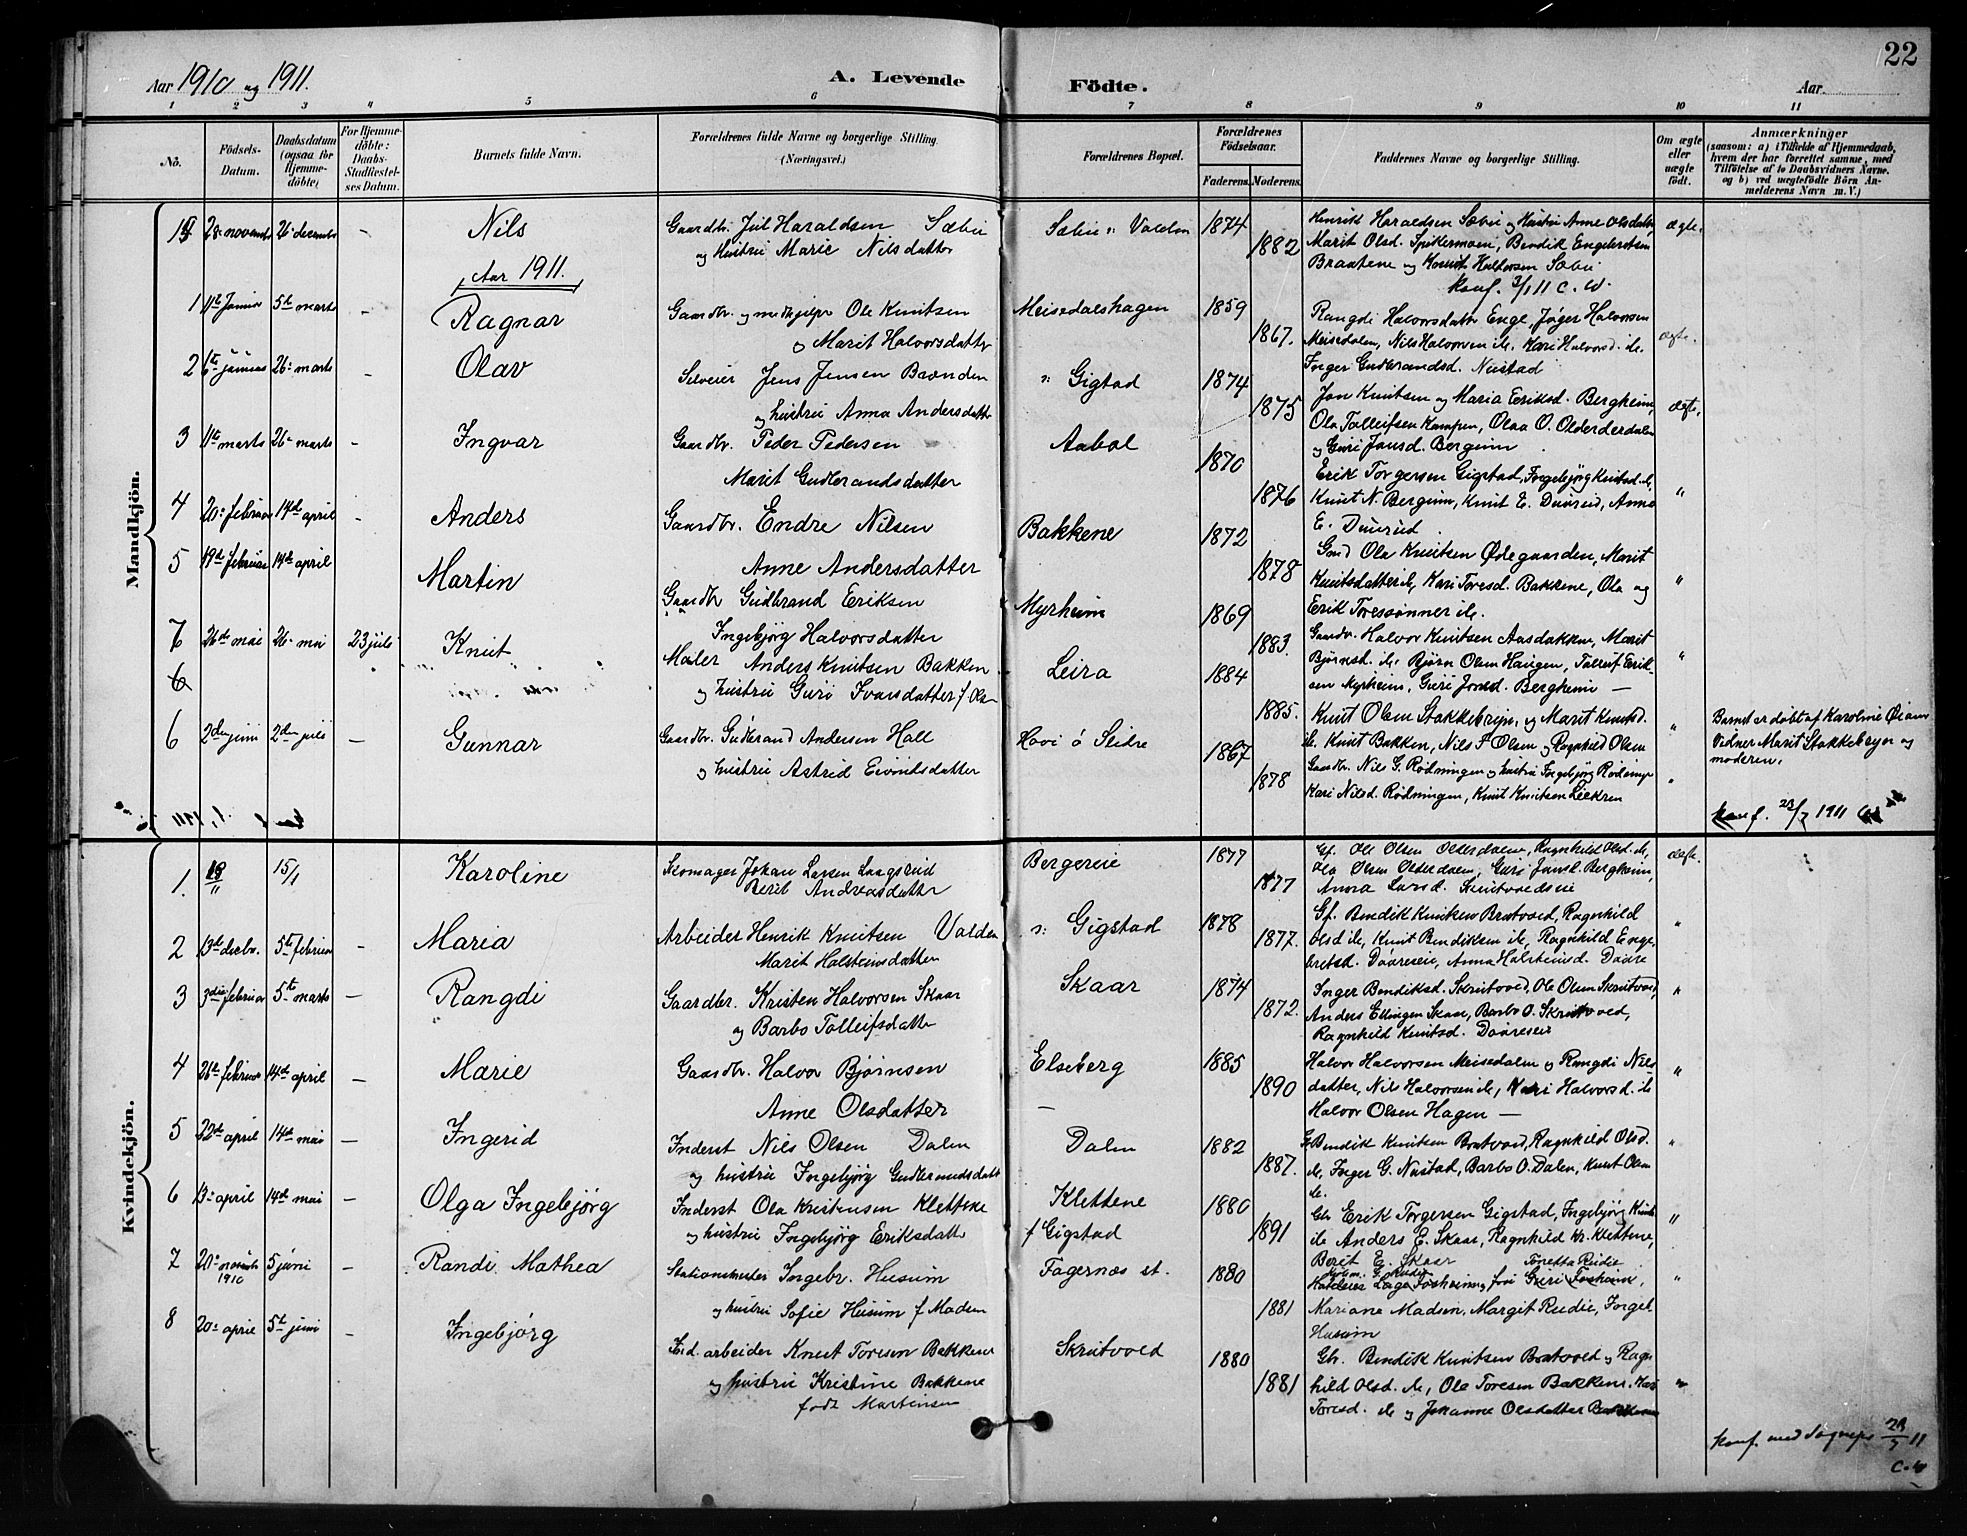 Aar 1910 og 1911.
A. Levende
Födte.
Aar
22
1 2 3 4 5 6 7 8 9 10 11
No.
Födsels-
Datum.
Daabsdatum
(ogsaa for
Hjemme-
döbte)
For Hjemme-
döbte:
Daabs-
Stadfæstel-
ses Datum.
Barnets fulde Navn.
Forældrenes fulde Navne og borgerlige Stilling.
(Næringsvei.)
Forældrenes Bopæl.
Forældrenes
Födselsaar.
Faderens. Moderens.
Faddernes Navne og borgerlige Stilling.
Om ægte
eller
uægte
födt.
Anmærkninger
(saasom: a) i Tilfælde af Hjemmedaab,
hvem der har forrettet samme, med
Tilföielse af to Daabsvidners Navne.
og b) ved uægtefödte Börn An-
melderens Navn m. V.)
Mandkjön.
28 novembr 26 decembr - Nils
Gaardbr. Jul Haraldsen Sæbu
og hustru Marie Nilsdatter
Valdon 1874 1882
Henrik Haraldsen Sæbu og Hustru Anne Olsdatter
Marit Olsd. Spikermoen, Bendik Engebretsen
Braatene og Knut Halvorsen Sæbu
konf. 3/1 11 C. W.
ægte.
Aar 1911.
1 5te marts - Ragnar
Gaardbr. og Ole Knutsen
og Marit Halvorsdatter
Meisedalshagen 1859 1867.
Rangdi Halvorsdatter Enge, Halvorsen
Meisedalen, Nils Halvorsen ib. Kari Halvorsd. ib.
Inger Gudbrandsd. Nustad
ægte.
2 6te januar 26 marts - Olav
Jens Jensen Brænden
og hustru Anna Andersdatter
Gigstad 1874 1875
Jon Knutsen og Maria Eriksd. Bergheim,
Ola Tolleifsen Kampen, Olaa O. Olderdalen
og Guri Jonsd. Bergum
ægte.
3 1te marts 26 marts - Ingvar
Gaardbr. Peder Pedersen
Marit Gudbrandsdatter
Aabol 1870 1876
Erik Torgersen Gigstad, Ingebjörg Knutsd. ib,
Knut N. Bergum, Knut E. Dúúrud, Anna
E. Dúúrud
"
4 20 februar 14de april - Anders
Gaardbr. Endre Nilsen
Anne Andersdatter
Bakkene 1872 1878
Gmd Ola Knutsen Ødegaarden, Marit
Knutsdatter ib, Kari Toresd. Bakkene, Ola og
Erik Toressønner ib.
"
5 19de februar 14de april Martin
Gaardbr Gudbrand Eriksen
Ingebjørg Halvorsdatter
Myrheim 1869 1883.
Gaardbr. Halvor Knutsen Aasbakken, Marit
Bjørnsd. ib. Bjørn Olsen Haugen, Tolleif Erik-
sen Myrheim, Guri Jonsd. Bergheim —
"
7 26de mai 26 mai 23 juli Knut
Maler Anders Knutsen Bakken
og hustru Guri Ivarsdatter f. Øian
Leira 1884 1885.
Knut Olsen Stakkebryn, og Marit Knutsd.
ib. Knut Bakken, Nils F Olsen og Ragnhild Olsen
"
Barnet er døbt af Karoline Øian
Vidner Marit Stakkebryn og
moderen.
6
6 2den juni 2den juli - Gunnar
Gaardbr. Gudbrand Andersen Hall
og hustru Astrid Eivindsdatter
Hovi ö Slidre 1867 1878
Gaardbr. Nils G. Rødningen og hustru Ingebjørg Rødninge
Kari Nilsd. Rødningen, Knut Knutsen Leekren
"
konf. 23/7 1911
Kvindekjön.
1. 15/1 Karoline
Skomager Johan Larsen Langsrud
Berit Andreasdatter
Bergereie 1877 1877
Gf. Ole Olsen Olderdalen, Ragnhild Olsd. ib,
Ola Olsen Olderdalen, Guri Jonsd. Bergheim,
Anna Larsd. Skrutvoldseie
ægte.
2 13de decbr. 5te februar - Maria
Arbeider Henrik Knutsen Valden
Marit Halsteinsdatter
Gigstad 1878 1877.
Gf. Bendik Knutsen Bratvold, Ragnhild
Olsd ib, Knut Bendiksen ib, Ragnhild Enge-
bretsd. Dââreseie, Anna Halsteinsd. Dââre
"
3 3die februar 5te marts - Rangdi
Gaardbr. Kristen Halvorsen Skaar
og Barbo Tolleifsdatter
Skaar 1874 1872.
Inger Bendiksd. Skrutvold, Ole Olsen Skrutvold,
Anders Ellingsen Skaar, Barbo O. Skrutvold,
Ragnhild Knutsd. Dââreseie
"
4 26de februar 14de april - Marie
Gaardbr. Halvor Bjørnsen
Anne Olsdatter
Elseberg 1885 1890
Halvor Halvorsen Meisedalen og Rangdi Nils-
datter, Nils Halvorsen ib, Kari Halvorsd. ib
Halvor Olsen Hagen —
"
5 22de april 14de mai - Ingerid
Inderst Nils Olsen Dalen
og hustru Ingebjørg Gudbrandsdatt
Dalen 1882 1887.
Bendik Knutsen Bratvold, Ragnhild Olsd.
ib, Inger G. Nustad, Barbo O. Dalen, Knut Olsen
ib.
"
6 13 april 14de mai - Olga Ingebjørg
Inderst Ola Kristensen Klettene
og hustru Ingebjørg Eriksdatte
Klettene
f Gigstad 1880 1891
Gbr Erik Torgersen Gigstad, Ingebjørg Knuts
ib Anders E. Skaar, Ragnhild Kr. Klettene,
Berit E. Skaar
"
7 20 novemb 1910 5 juni - Randi Mathea
Stationsmester Ingebr. Husum
og hustru Sofie Husum f Madsen
Fagernæs st. 1880 1881
Tonetta Rudie
Mariane Madsen, Margit Rudie, Ingeb.
Husum
"
8 20 april 5te juni - Ingebjørg
arbeider Knut Toresen Bakkene
og hustru Kristine Bakkene
født Martensen
Skrutvold 1880 1881
Gbr. Bendik Knutsen Bratvold og Ragn-
hild Olsd. ib, Ole Toresen Bakkene, Mari
Toresd. ib og Johanne Olsdatter Bakkene
"
konf. med Sognepr 28/7 11
C. W